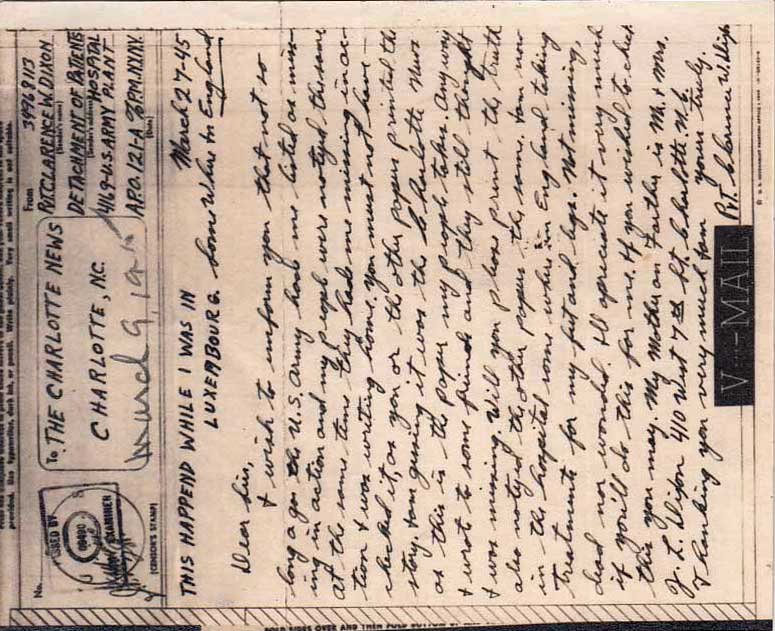 provided. Use typewriter, dark ink, or pencil. Write plainly. Very small writing is not suitable.
No.
PASSED BY
EXAMINER
(CENSOR'S STAMP)
To THE CHARLOTTE NEWS
CHARLOTTE, N.C.
March 9, 19
From 39968113
PVT. CLARENCE W. DIXON
(Sender's name)
DETACHMENT OF PATENS
(Sender's address) HOSPITAL
4169-U.S. ARMY PLANT
A.P.O. 121-A % P.M. N.Y. N.Y.
(Date)
THIS HAPPEND WHILE I WAS IN
LUXEMBOURG.
March 27-45
Some Where In England
Dear Sirs,
I wish to imform you that not so
long ago the U.S. Army had me listed as miss-
ing in action and my people were notifyed the same
at the same time they had me missing in ac-
tion I was writing home. You must not have
checked it, as you or the other papers printed the
story. I am guessing it was the Charlotte News
as this is the paper my people takes. Anyway
I wrote to some friends and they still thought
I was missing. Will you please print the truth
also notifyed the other papers the same. I am now
in the hospital some where in England taking
treatments for my feet and legs. Not missing,
dead nor wonded. I'll apreciate it very much
if you'll do this for me. If you wished to check
this you may. My Mother an Farther is Mr. & Mrs.
J. L. Dixon 410 West 7th St. Charlotte. N.C.
Thanking you very much I am yours truly.
Pvt. Clarence W. Dixon
V--MAIL
FOLD SIDES OVER AND THEN FOLD BOTTOM